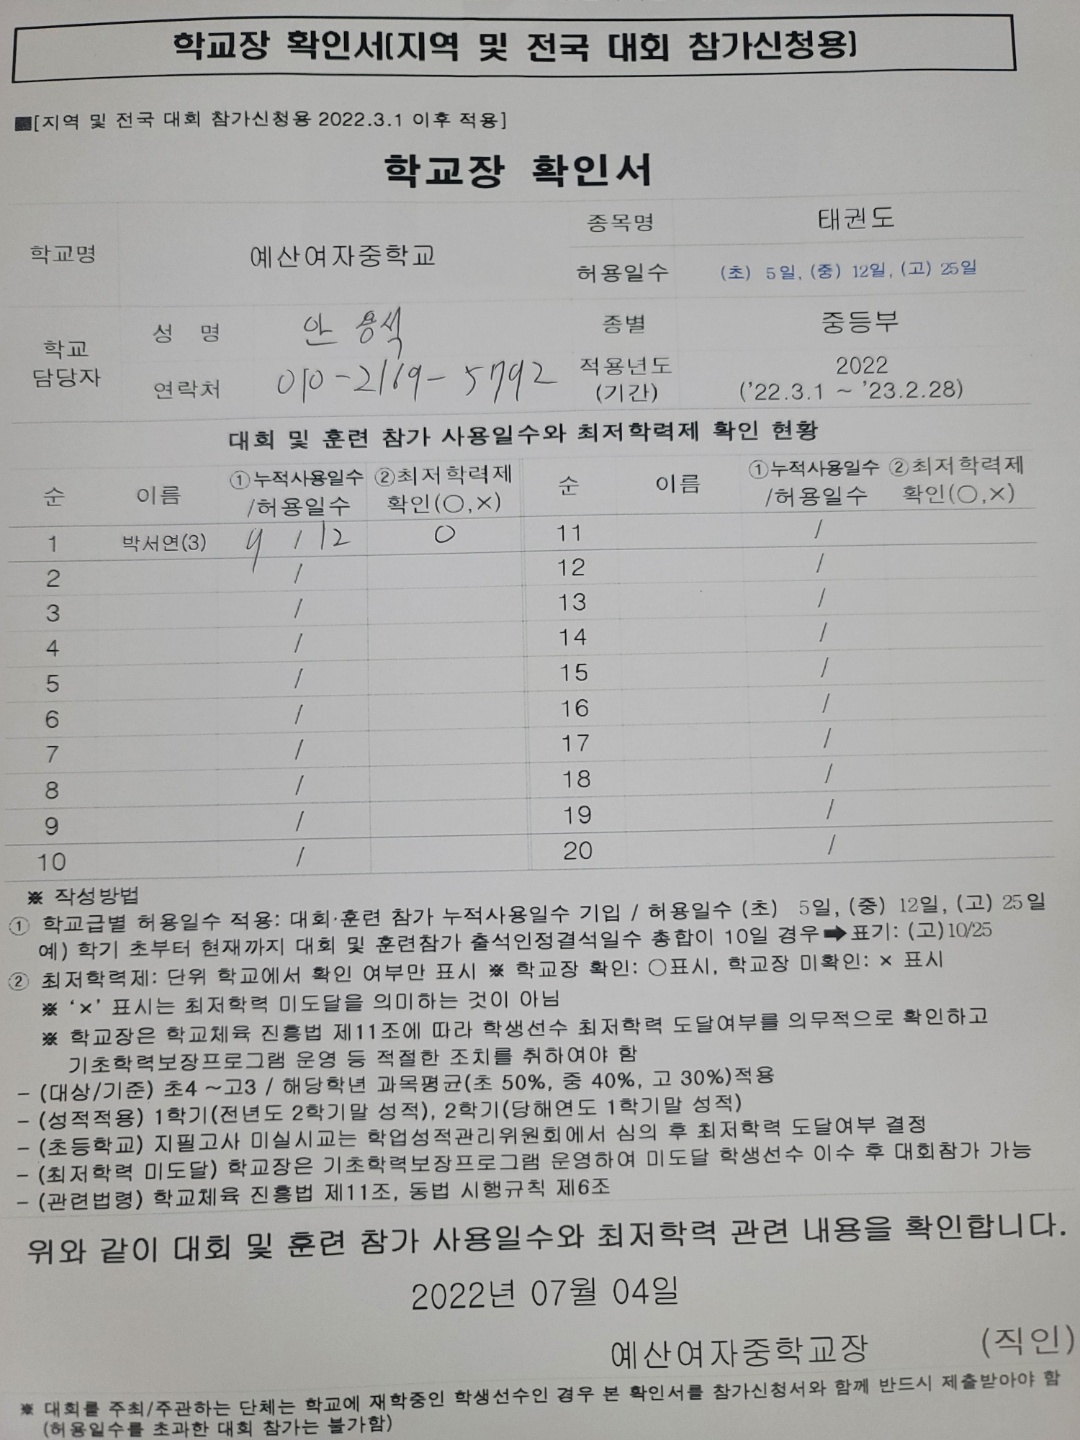 학교장 확인서(지역 및 전국 대회 참가신청용)
■[지역 및 전국 대회 참가신청용 2022.3.1 이후 적용]
학교장 확인서
학교명 예산여자중학교 종목명 태권도
허용일수 (초) 5일, (중) 12일, (고) 25일
학교 담당자 성 명 안용석 종별 중등부
연락처 010-2169-5792 적용년도 (기간) 2022 ('22.3.1 ~ '23.2.28)
대회 및 훈련 참가 사용일수와 최저학력제 확인 현황
순 이름 ①누적사용일수 /허용일수 ②최저학력제 확인(○,×) 순 이름 ①누적사용일수 /허용일수 ②최저학력제 확인(○,×)
1 박서연(3) 9 / 12 ○ 11 /
2 / 12 /
3 / 13 /
4 / 14 /
5 / 15 /
6 / 16 /
7 / 17 /
8 / 18 /
9 / 19 /
10 / 20 /
※ 작성방법
① 학교급별 허용일수 적용: 대회·훈련 참가 누적사용일수 기입 / 허용일수 (초) 5일, (중) 12일, (고) 25일
예) 학기 초부터 현재까지 대회 및 훈련참가 출석인정결석일수 총합이 10일 경우➡표기: (고)10/25
② 최저학력제: 단위 학교에서 확인 여부만 표시 ※ 학교장 확인: ○표시, 학교장 미확인: × 표시
※ '×' 표시는 최저학력 미도달을 의미하는 것이 아님
※ 학교장은 학교체육 진흥법 제11조에 따라 학생선수 최저학력 도달여부를 의무적으로 확인하고
기초학력보장프로그램 운영 등 적절한 조치를 취하여야 함
- (대상/기준) 초4 ~고3 / 해당학년 과목평균(초 50%, 중 40%, 고 30%)적용
- (성적적용) 1학기(전년도 2학기말 성적), 2학기(당해연도 1학기말 성적)
- (초등학교) 지필고사 미실시교는 학업성적관리위원회에서 심의 후 최저학력 도달여부 결정
- (최저학력 미도달) 학교장은 기초학력보장프로그램 운영하여 미도달 학생선수 이수 후 대회참가 가능
- (관련법령) 학교체육 진흥법 제11조, 동법 시행규칙 제6조
위와 같이 대회 및 훈련 참가 사용일수와 최저학력 관련 내용을 확인합니다.
2022년 07월 04일
예산여자중학교장 (직인)
※ 대회를 주최/주관하는 단체는 학교에 재학중인 학생선수인 경우 본 확인서를 참가신청서와 함께 반드시 제출받아야 함
(허용일수를 초과한 대회 참가는 불가함)